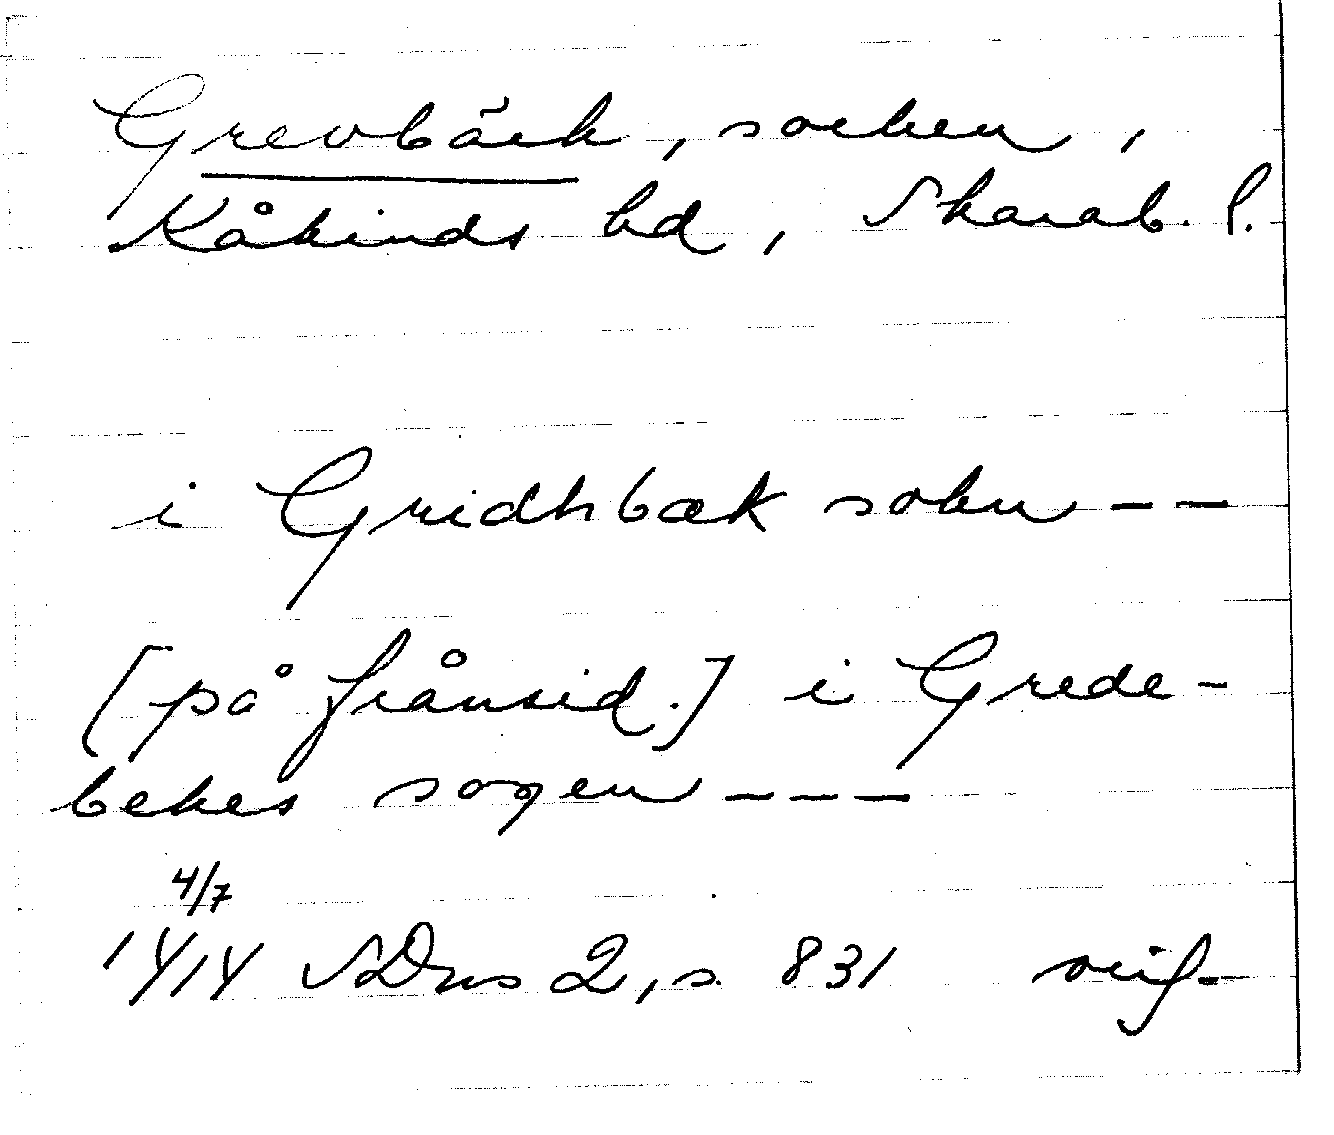 Grevbäck, socken,
Kåkinds hd, Skarab. l.
i Gridhbæk sokn - -
[på frånsid.] i Grede-
bekes sogen - - -
4/7
1414 SDns 2, s. 831